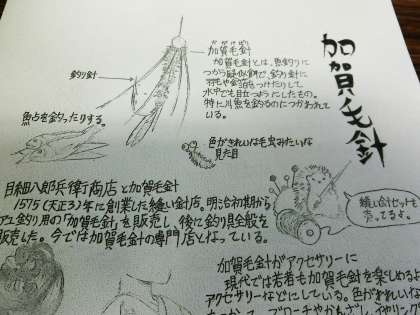 加賀毛針
かがけばり
加賀毛針
加賀毛針とは、魚釣りに
つかう疑似餌で、釣り針に
羽毛や金箔をつけたりして
水中でも目立つようにしたもの。
特に川魚を釣るのにつかわれて
いる。
釣り針
魚占を釣ったりする。
色がきれいな毛虫みたいな
見た目
縫い針セットも
売ってるよ。
目細八郎兵衛商店と加賀毛針
1575(天正3)年に創業した縫い針店。明治初期から
アユ釣り用の「加賀毛針」を販売し、後に釣り具全般を
販売した。今では加賀毛針の専門店となっている。
加賀毛針がアクセサリーに
現代では若者も加賀毛針を楽しめるよ
アクセサリーなどにしている。色がきれいな
ブローチやかんざし、イヤリング